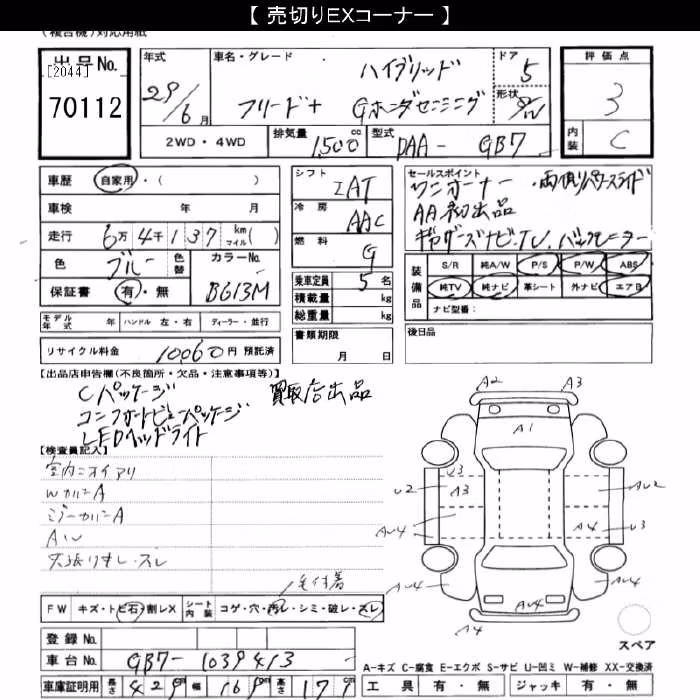 【 売切りEXコーナー 】
(複合機)対応用紙
出品No.
[2044]
70112
年式
29/6月
車名・グレード
ハイブリッド
フリード+ Gホンダセンシング
ドア
5
形状
評価点
3
内装
C
2WD・4WD
排気量
1500cc
型式
DAA- GB7
車歴
自家用・( )
車検 年 月
走行 6万4千137 km マイル( )
色 ブルー 色替
カラーNo.
BG13M
保証書 有・無
シフト
IAT
冷房
AAC
燃料
G
乗車定員 5名
積載量 kg
総重量 kg
セールスポイント
ワンオーナー ・両側パワースライド
AA初出品
ギャザーズナビ.TV.バックモニター
装備品
S/R 純A/W P/S P/W ABS
純TV 純ナビ 革シート 外ナビ エアB
ナビ型番:
モデル年式 年 ハンドル 左・右 ディーラー・並行
リサイクル料金 10060円 預託済
書類期限
月 日
後日品
【出品店申告欄(不良箇所・欠品・注意事項等)】
Cパッケージ 買取店出品
コンフォートビューパッケージ
LEDヘッドライト
【検査員記入】
室内ニオイアリ
WカバーA
ミラーカバーA
AW
天張りキレ・ズレ
毛付着
FW キズ・トビ石・割レX
シート内装 コゲ・穴・汚レ・シミ・破レ・スレ
登録No.
車台No. GB7-1039413
車庫証明用 長さ 429cm 幅 169cm 高さ 171cm
A2 A3
A1
U3
U2 A3 AU2
AU4 A4 U3
AU4 AU4
AU4
A4
スペア
A-キズ C-腐食 E-エクボ S-サビ U-凹ミ W-補修 XX-交換済
工具 有・無 ジャッキ 有・無